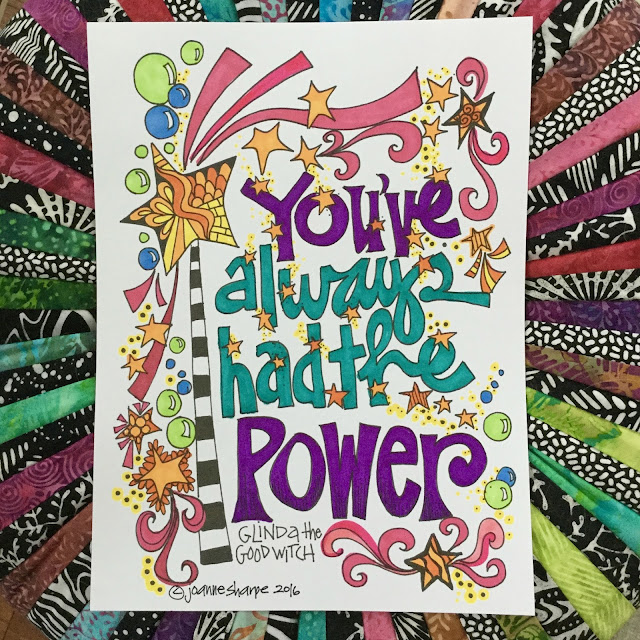 You've
always
had the
Power
GLINDa the
GOOD WITCH
©joannesharpe 2016